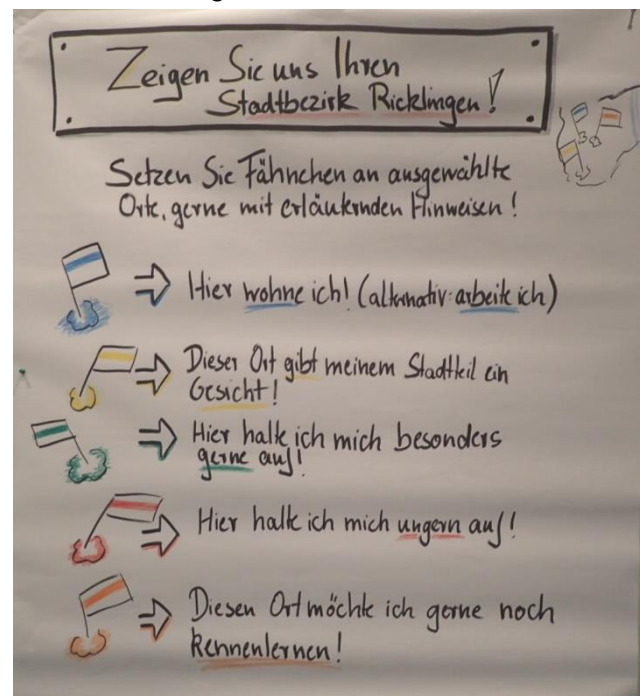 Zeigen Sie uns Ihren
Stadtbezirk Ricklingen!
Setzen Sie Fähnchen an ausgewählte
Orte, gerne mit erläuternden Hinweisen!
Hier wohne ich! (alternativ: arbeite ich)
Dieser Ort gibt meinem Stadtteil ein
Gesicht!
Hier halte ich mich besonders
gerne auf!
Hier halte ich mich ungern auf!
Diesen Ort möchte ich gerne noch
kennenlernen!